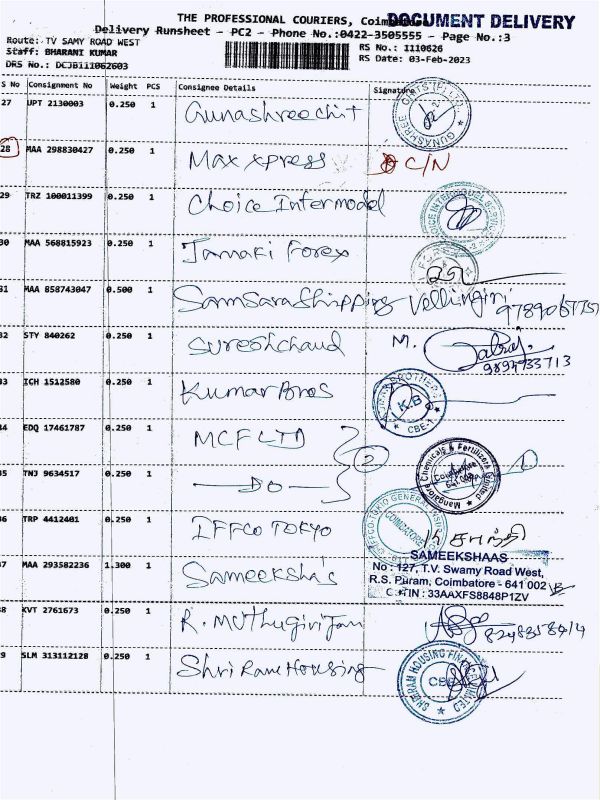 THE PROFESSIONAL COURIERS, Coimbatore
DOCUMENT DELIVERY
Delivery Runsheet - PC2 - Phone No.:0422-3505555 - Page No.:3
Route: TV SAMY ROAD WEST
Staff: BHARANI KUMAR
DRS No.: DCJB111062603
RS No.: 1110626
RS Date: 03-Feb-2023
S No Consignment No Weight PCS Consignee Details Signature
27 UPT 2130003 0.250 1 Gunashree chit
28 MAA 298830427 0.250 1 Max xpress C/N
29 TRZ 100011399 0.250 1 Choice Intermodel
30 MAA 568815923 0.250 1 Tamaki Forex
31 MAA 858743047 0.500 1 Samsara Shipping Vellingiri
32 STY 840262 0.250 1 Sureshchaud M.
9894933713
33 ICH 1512580 0.250 1 Kumar Bros K.B CBE-1
34 EDQ 17461787 0.250 1 MCF LTD 2
Mangalore Chemicals & Fertilizers Limited
35 TNJ 9634517 0.250 1 DO
36 TRP 4412401 0.250 1 IFFCO TOKYO
IFFCO-TOKIO GENERAL COIMBATORE
37 MAA 293582236 1.300 1 Sameeksha's
SAMEEKSHAAS
No : 127, T.V. Swamy Road West,
R.S. Puram, Coimbatore - 641 002
GSTIN : 33AAXFS8848P1ZV
38 KVT 2761673 0.250 1 R. Muthugirijam
39 SLM 313112128 0.250 1 Shri Ram Housing
SHRIRAM HOUSING FINANCE LIMITED CBE